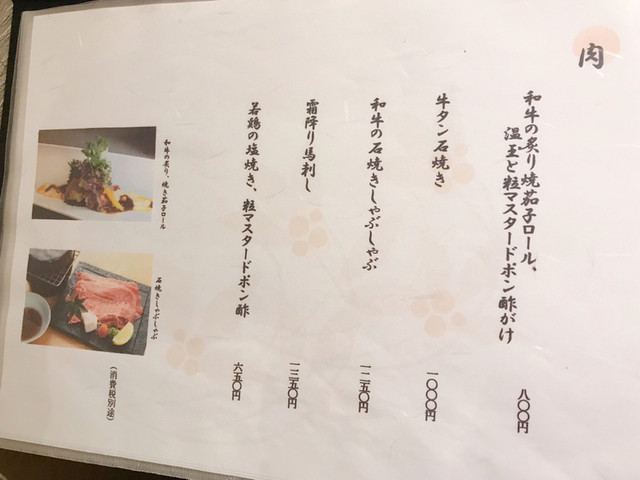 肉
和牛の炙り焼茄子ロール、
温玉と粒マスタードポン酢がけ
八〇〇円
牛タン石焼き
一〇〇〇円
和牛の石焼きしゃぶしゃぶ
一二五〇円
霜降り馬刺し
一二五〇円
若鶏の塩焼き、粒マスタードポン酢
六五〇円
和牛の炙り、焼き茄子ロール
石焼きしゃぶしゃぶ
（消費税別途）